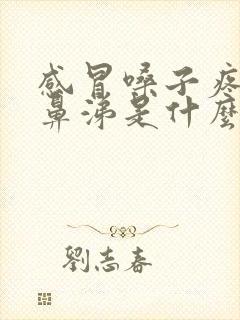 感冒嗓子疼
鼻涕是什麼
劉志春